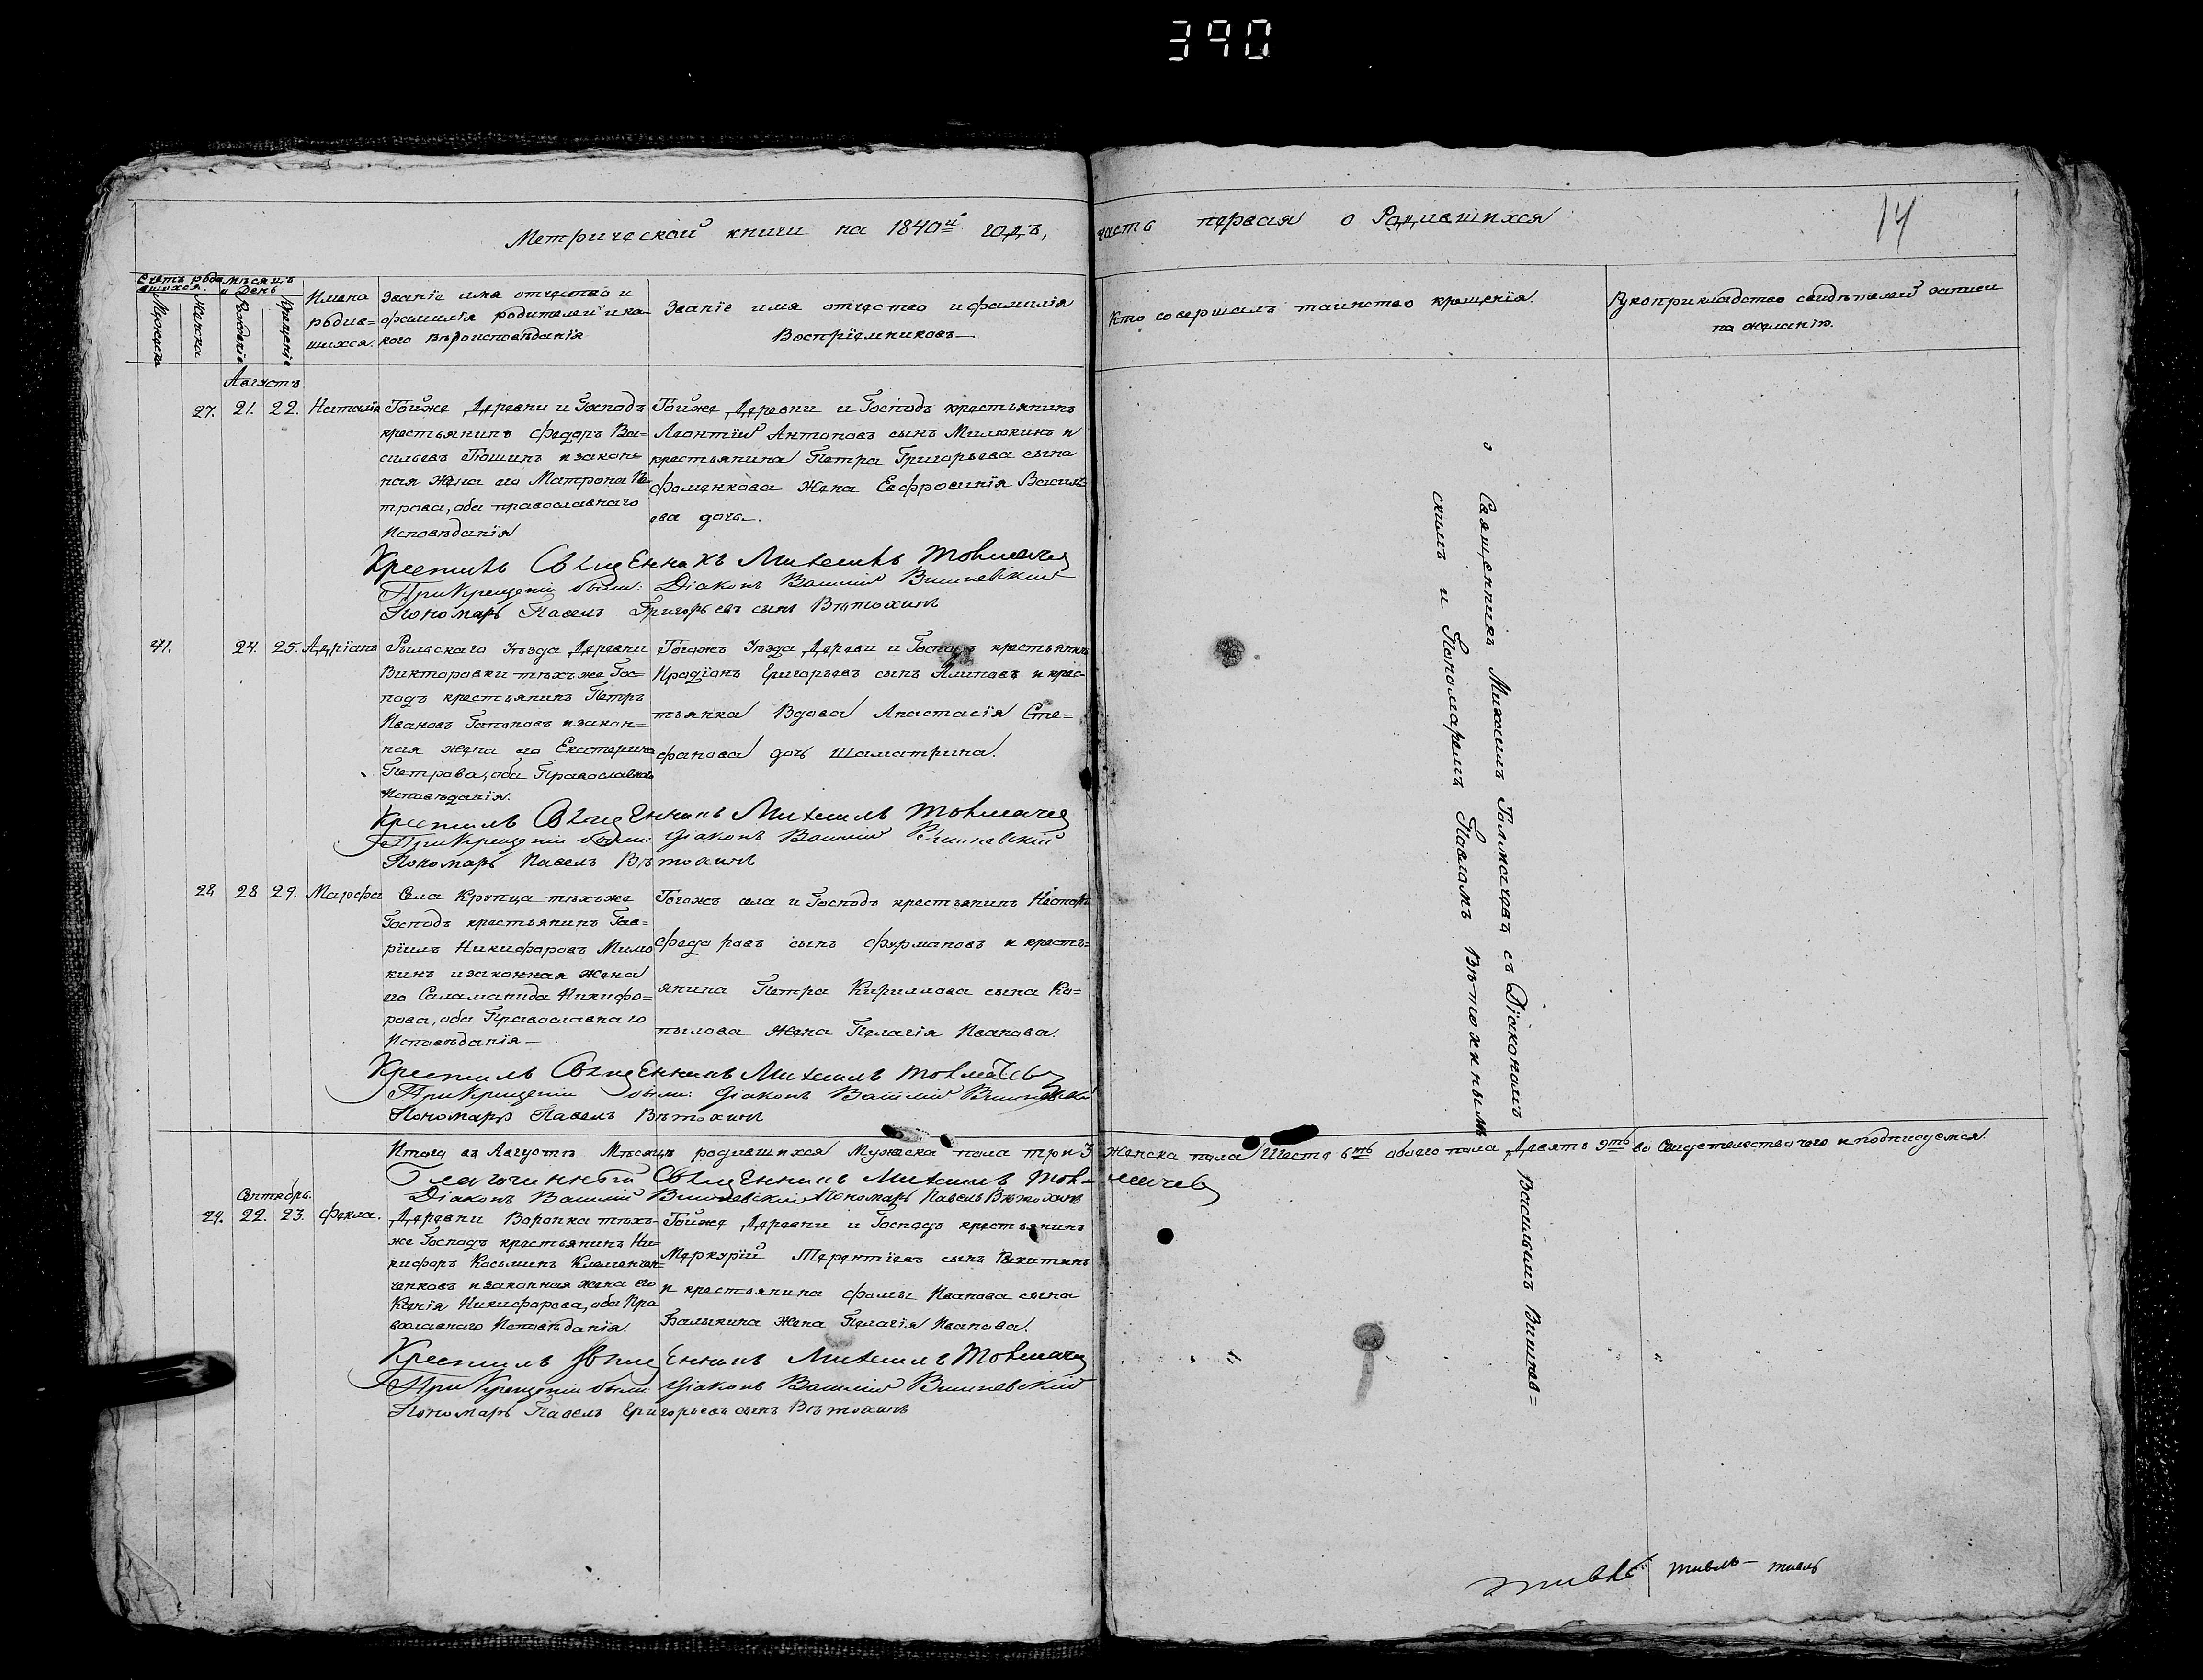 390
Метрической книги на 1840й годъ, часть первая о Родившихся
14
Счетъ роди
вшихся.
Мѣсяцъ
и День
Мужеска
Женска
Рожденiе
Крещенiе
Имена
родив=
шихся.
Званїе имя отчество и
фамилїя родителей и ка=
кого вѣроисповѣданїя
Званїе имя отчество и фамилїя
Воспрїемниковъ
Кто совершалъ таинство крещенїя.
Рукоприкладство свидѣтелей записи
по желанїю.
Августъ
27. 21. 22. Наталїя
Тойже Деревни и Господъ
крестьянинъ Федоръ Ва=
сильевъ Тюшинъ и закон=
ная жена его Матрона Пе
трова, оба православнаго
Исповѣданїя
Тойже Деревни и Господъ крестьянинъ
Леонтїй Антоновъ сынъ Милюкинъ и
крестьянина Петра Григорьева сына
Фоменкова Жена Евфросинїя Василь
ева дочь.
Крестилъ Священникъ Михаилъ Толмачевъ
При Крещенїи были: Дїаконъ Василий Вишневскїй
Пономарь Павелъ Григорьевъ сынъ Вѣтохинъ
41. 24. 25. Адрїанъ
Рыльскаго Уѣзда Деревни
Викторовки тѣхъже Гос=
подъ крестьянинъ Петръ
Ивановъ Гапоновъ и закон=
ная жена его Екатерина
Петрова, оба Православнаго
Исповѣданїя.
Тогожъ Уѣзда Деревни и Господъ крестьянинъ
Иродїонъ Григорьевъ сынъ Алиповъ и крес=
тьянка Вдова Анастасїя Сте=
фанова дочь Шаматрина.
Крестилъ Священникъ Михаилъ Толмачевъ
При Крещенїи были: Дїаконъ Василий Вишневскїй
Пономарь Павелъ Вѣтохинъ
28 28 29. Марфа
Села Крупца тѣхъже
Господъ крестьянинъ Гав=
рїилъ Никифоровъ Милю
кинъ и законная жена
его Саламанида Никифо=
рова, оба Православнаго
Исповѣданїя
Тогожъ села и Господъ крестьянинъ Несторъ
Федоровъ сынъ Фурмановъ и кресть=
янина Петра Кириллова сына Ко=
пылова Жена Пелагїя Иванова.
Крестилъ Священникъ Михаилъ Толмачевъ
При Крещенїи были: Дїаконъ Василий Вишневскїй
Пономарь Павелъ Вѣтохинъ
Итого въ Августѣ Мѣсяцѣ родившихся Мужеска пола три 3 Женска пола Шесть 6ть обоего пола Девять 9ть во Свидетельство чего и подписуемся.
Благочинный Священникъ Михаилъ Толмачевъ
Дїаконъ Василий Вишневскїй Пономарь Павелъ Вѣтохинъ
Сентябрь.
29. 22. 23. Фекла.
Деревни Воронка тѣхъ=
же Господъ крестьянинъ Ни=
кифоръ Косьминъ
и законная жена его
Ксенїя Никифорова, оба Пра
вославнаго Исповѣданїя.
Тойже Деревни и Господъ крестьянинъ
Меркурїй Терентїевъ сынъ Никитинъ
и крестьянина Фомы Иванова сына
Балыкина Жена Пелагїя Иванова.
Крестилъ Священникъ Михаилъ Толмачевъ
При Крещенїи были Дїаконъ Василий Вишневскїй
Пономарь Павелъ Григорьевъ сынъ Вѣтохинъ
Священникъ Михаилъ Толмачевъ съ Дїакономъ Васильемъ Вишнев=
скимъ и Пономаремъ Павломъ Вѣтохинымъ